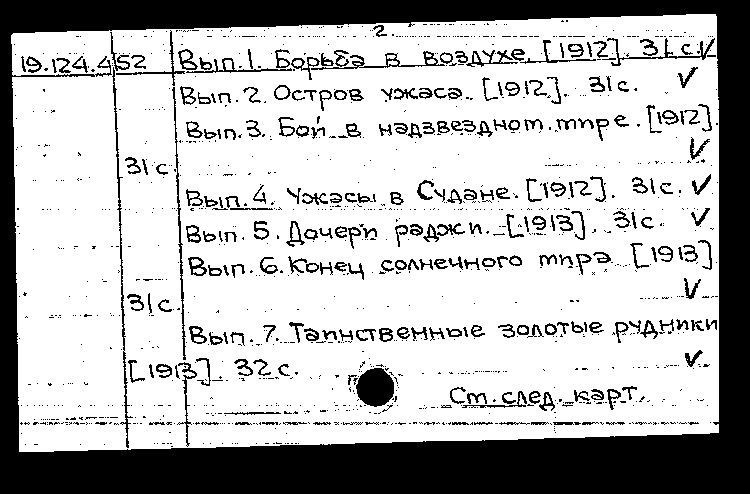 2.
19.124.452 Вып.1. Борьба в воздухе. [1912]. 31 с. ✓
Вып. 2. Остров ужаса. [1912]. 31с. ✓
Вып. 3. Бой в надзвездном мире. [1912].
31с. ✓
Вып. 4. Ужасы в Судане. [1912]. 31с. ✓
Вып. 5. Дочери раджи. [1913]. 31с. ✓
Вып. 6. Конец солнечного мира [1913]
31с. ✓
Вып. 7. Таинственные золотые рудники
[1913]. 32 с. ✓
См. след. карт.